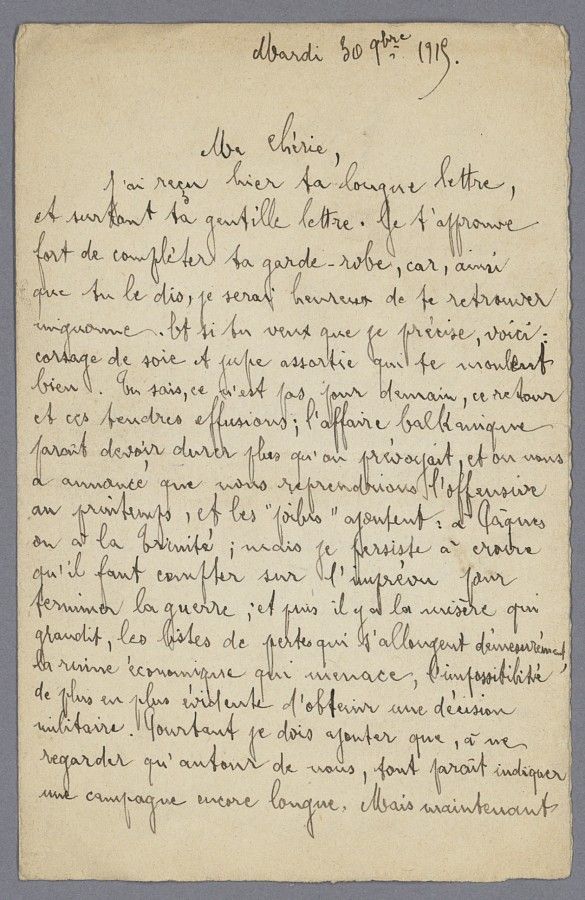 Mardi 30 9bre 1915.
Ma Chérie,
J'ai reçu hier ta longue lettre,
et surtout ta gentille lettre. Je t'approuve
fort de compléter ta garde-robe, car, ainsi
que tu le dis, je serai heureux de te retrouver
mignonne. Et si tu veux que je précise, voici :
corsage de soie et jupe assortie qui te moulent
bien. Tu sais, ce n'est pas pour demain, ce retour
et ces tendres effusions ; l'affaire balkanique
paraît devoir durer plus qu'on prévoyait, et on nous
a annoncé que nous reprendrions l'offensive
au printemps, et les "poilus" ajoutent : à Pâques
ou à la Trinité ; mais je persiste à croire
qu'il faut compter sur l'imprévu pour
terminer la guerre ; et puis il y a la misère qui
grandit, les listes de pertes qui s'allongent démesurément,
la ruine économique qui menace, l'impossibilité
de plus en plus évidente d'obtenir une décision
militaire. Pourtant je dois ajouter que, à ne
regarder qu'autour de nous, tout paraît indiquer
une campagne encore longue. Mais maintenant